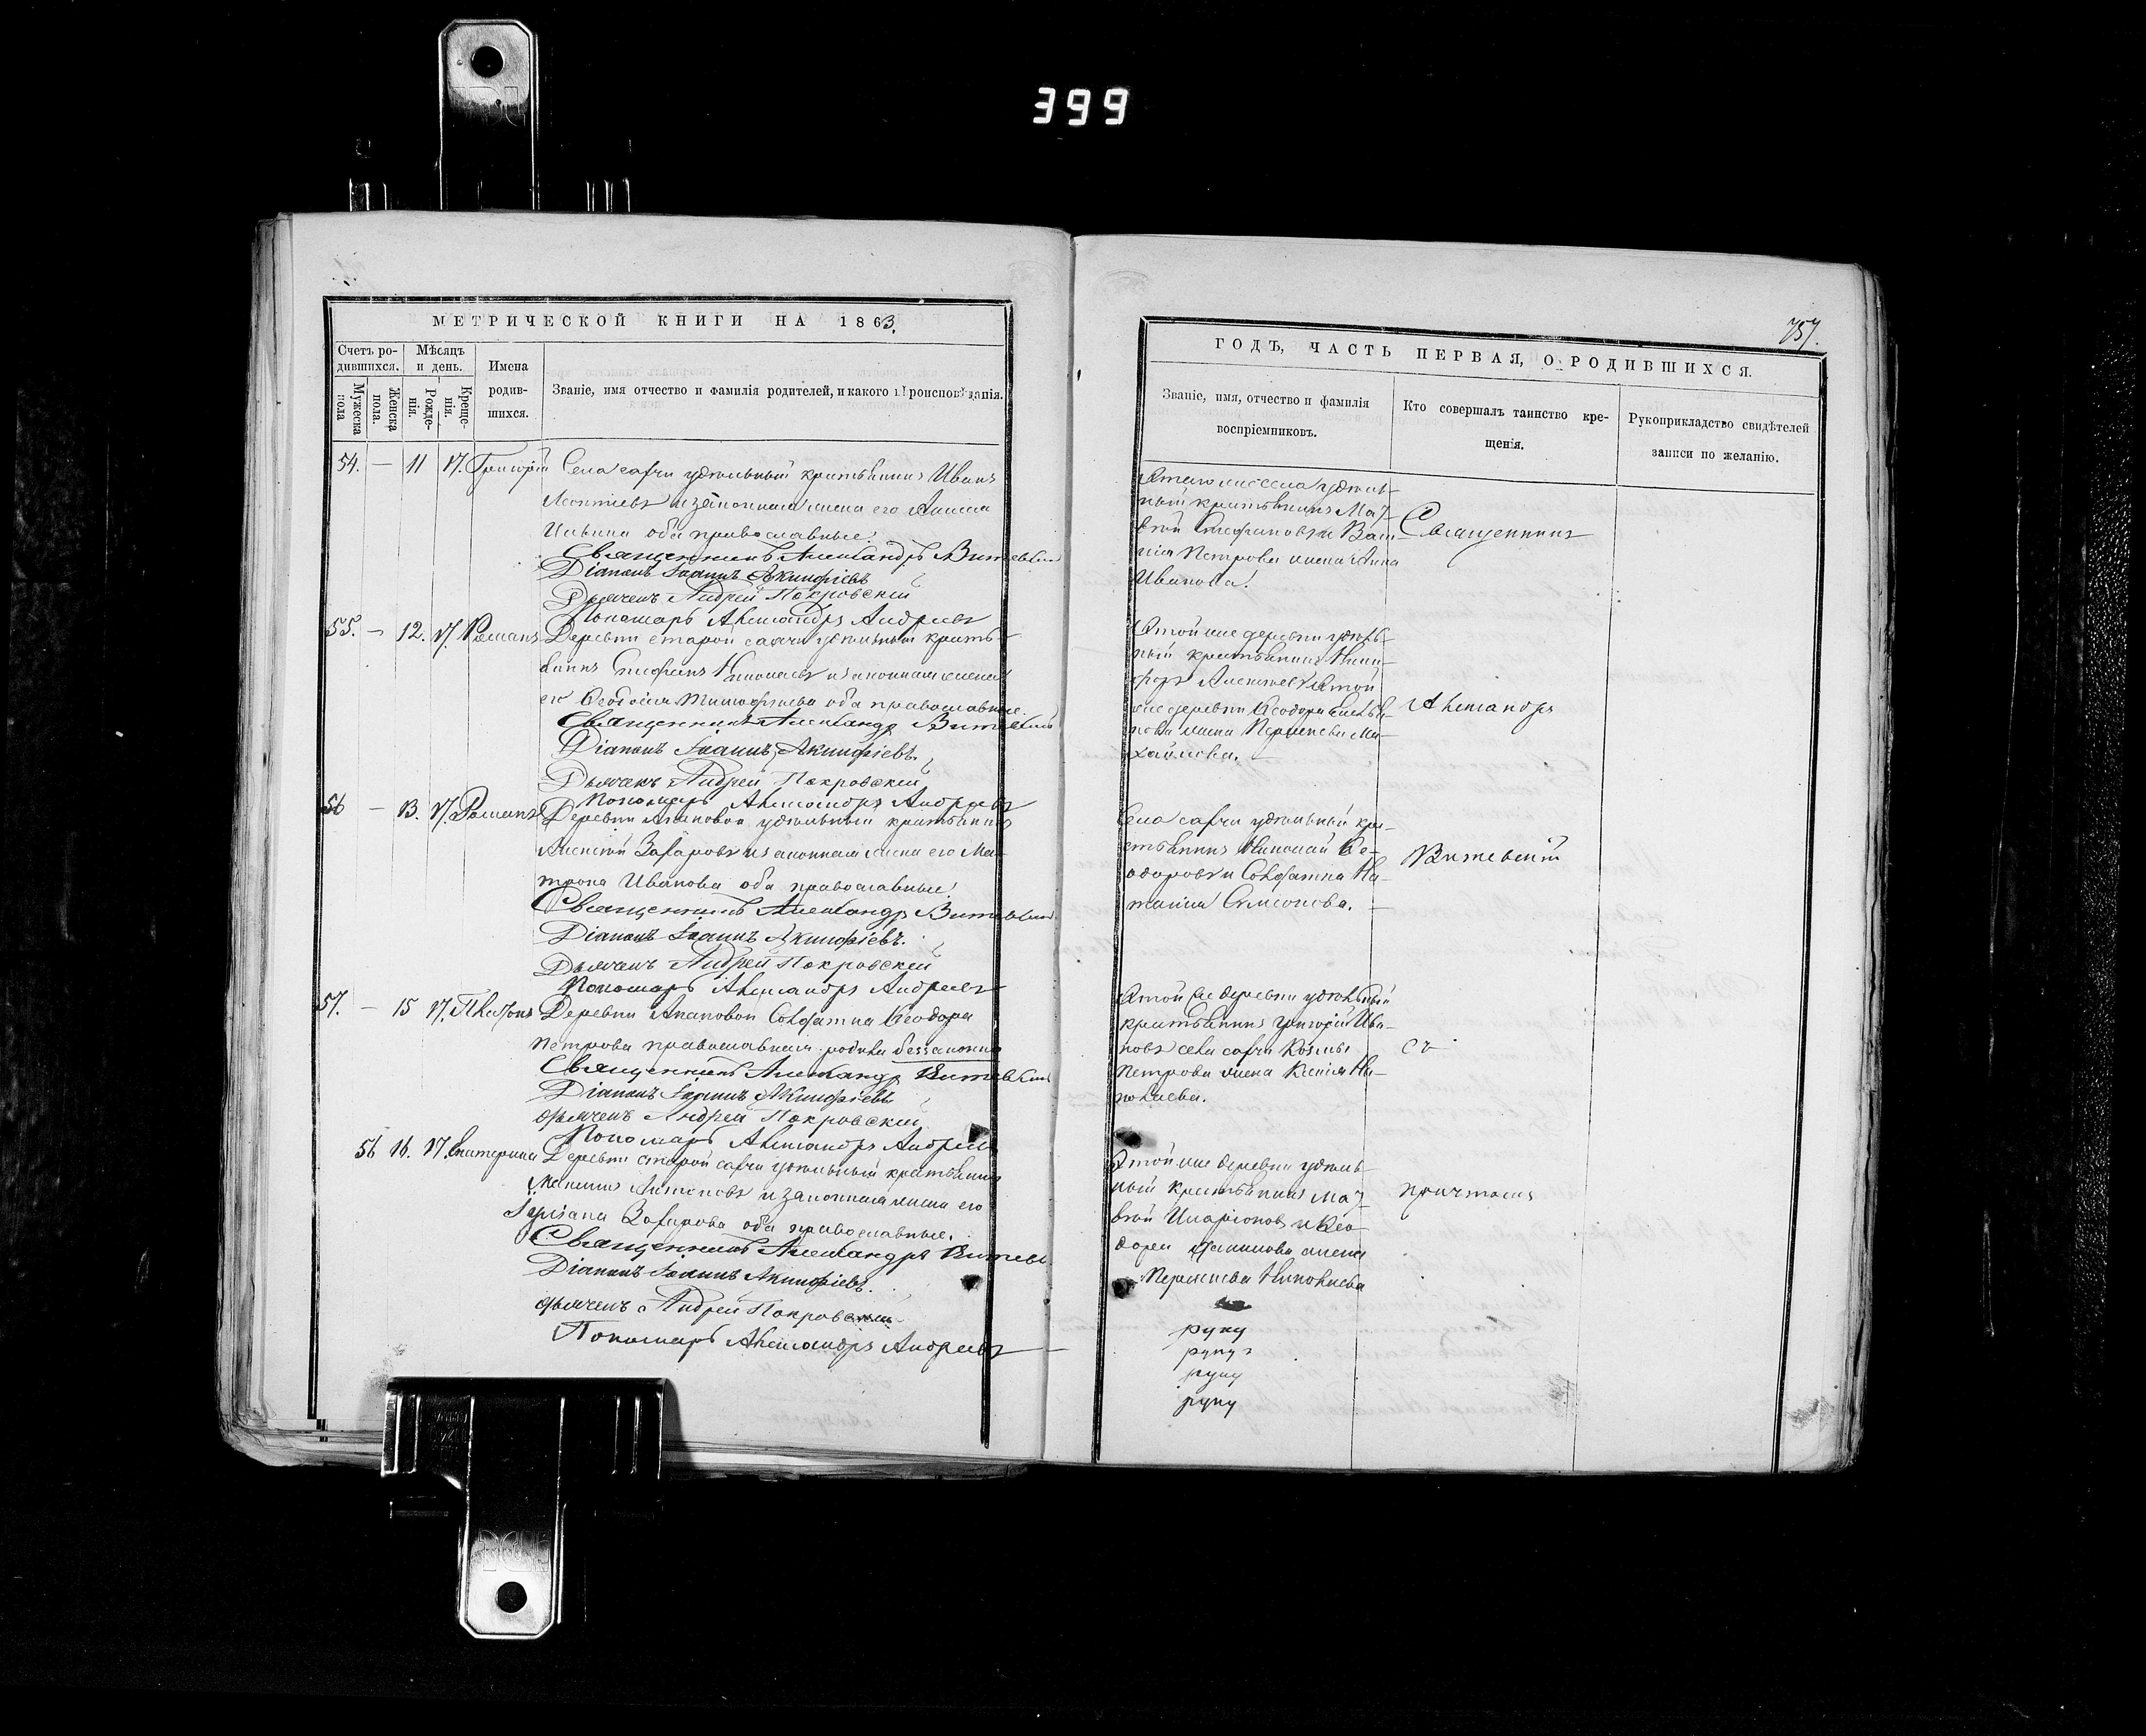 399
МЕТРИЧЕСКОЙ КНИГИ НА 1863.
Счетъ ро-
дившихся.
Мѣсяцъ
и день.
Мужеска
пола
Женска
пола.
Рожде-
нія.
Креще-
нія.
Имена
родив-
шихся.
Званіе, имя отчество и фамилія родителей, и какого вѣроисповѣданія.
54. — 11 17. Григорій Села удѣльный крестьянинъ Иванъ
Леонтьевъ и законная жена его
Ильина оба православные.
Священникъ Александръ Витевскій
Діаконъ Іоаннъ Акинфіевъ
Дьячекъ Андрей Покровскій
Пономарь Александръ Андреевъ
55. — 12. 17. Романъ Деревни старой удѣльный кресть-
янинъ Стефанъ и законная жена
его Ѳеодосія Тимофѣева оба православные.
Священникъ Александръ Витевскій
Діаконъ Іоаннъ Акинфіевъ.
Дьячекъ Андрей Покровскій
Пономарь Александръ Андреевъ
56 — 13. 17. Романъ Деревни удѣльный крестьянинъ
Алексѣй Захаровъ и законная жена его Ма-
трона Иванова оба православные.
Священникъ Александръ Витевскій
Діаконъ Іоаннъ Акинфіевъ.
Дьячекъ Андрей Покровскій
Пономарь Александръ Андреевъ
57. — 15 17. Платонъ Деревни Солдатка Ѳеодора
Петрова православная родила беззаконно
Священникъ Александръ Витевскій
Діаконъ Іоаннъ Акинфіевъ
Дьячекъ Андрей Покровскій
Пономарь Александръ Андреевъ
56 16. 17. Екатерина Деревни старой удѣльный крестьянинъ
Антоновъ и законная жена его
Захарова оба православные.
Священникъ Александръ
Діаконъ Іоаннъ Акинфіевъ.
Дьячекъ Андрей Покровскій
Пономарь Александръ Андреевъ
757.
ГОДЪ, ЧАСТЬ ПЕРВАЯ, О РОДИВШИХСЯ.
Званіе, имя, отчество и фамилія
воспріемниковъ.
Кто совершалъ таинство кре-
щенія.
Рукоприкладство свидѣтелей
записи по желанію.
Этого же села удѣль-
ный крестьянинъ Мат-
вѣй Стефановъ и
Петрова жена Анна
Иванова.
Священникъ
Этой же деревни удѣль-
ный крестьянинъ Ники-
форъ этой
же деревни Ѳеодора
жена Ми-
хайлова.
Александръ
Села удѣльный кре-
стьянинъ Николай Ѳе-
одоровъ и Солдатка На-
талія Симонова.
Витевскій
Этой же деревни удѣльный
крестьянинъ Григорій Ива-
новъ села Козмы
Петрова жена Ксенія Ни-
колаева.
съ
Этой же деревни удѣль-
ный крестьянинъ Мат-
вѣй Иларіоновъ и Ѳео-
дора жена
Николаева
причтомъ
руку
руку
руку
руку